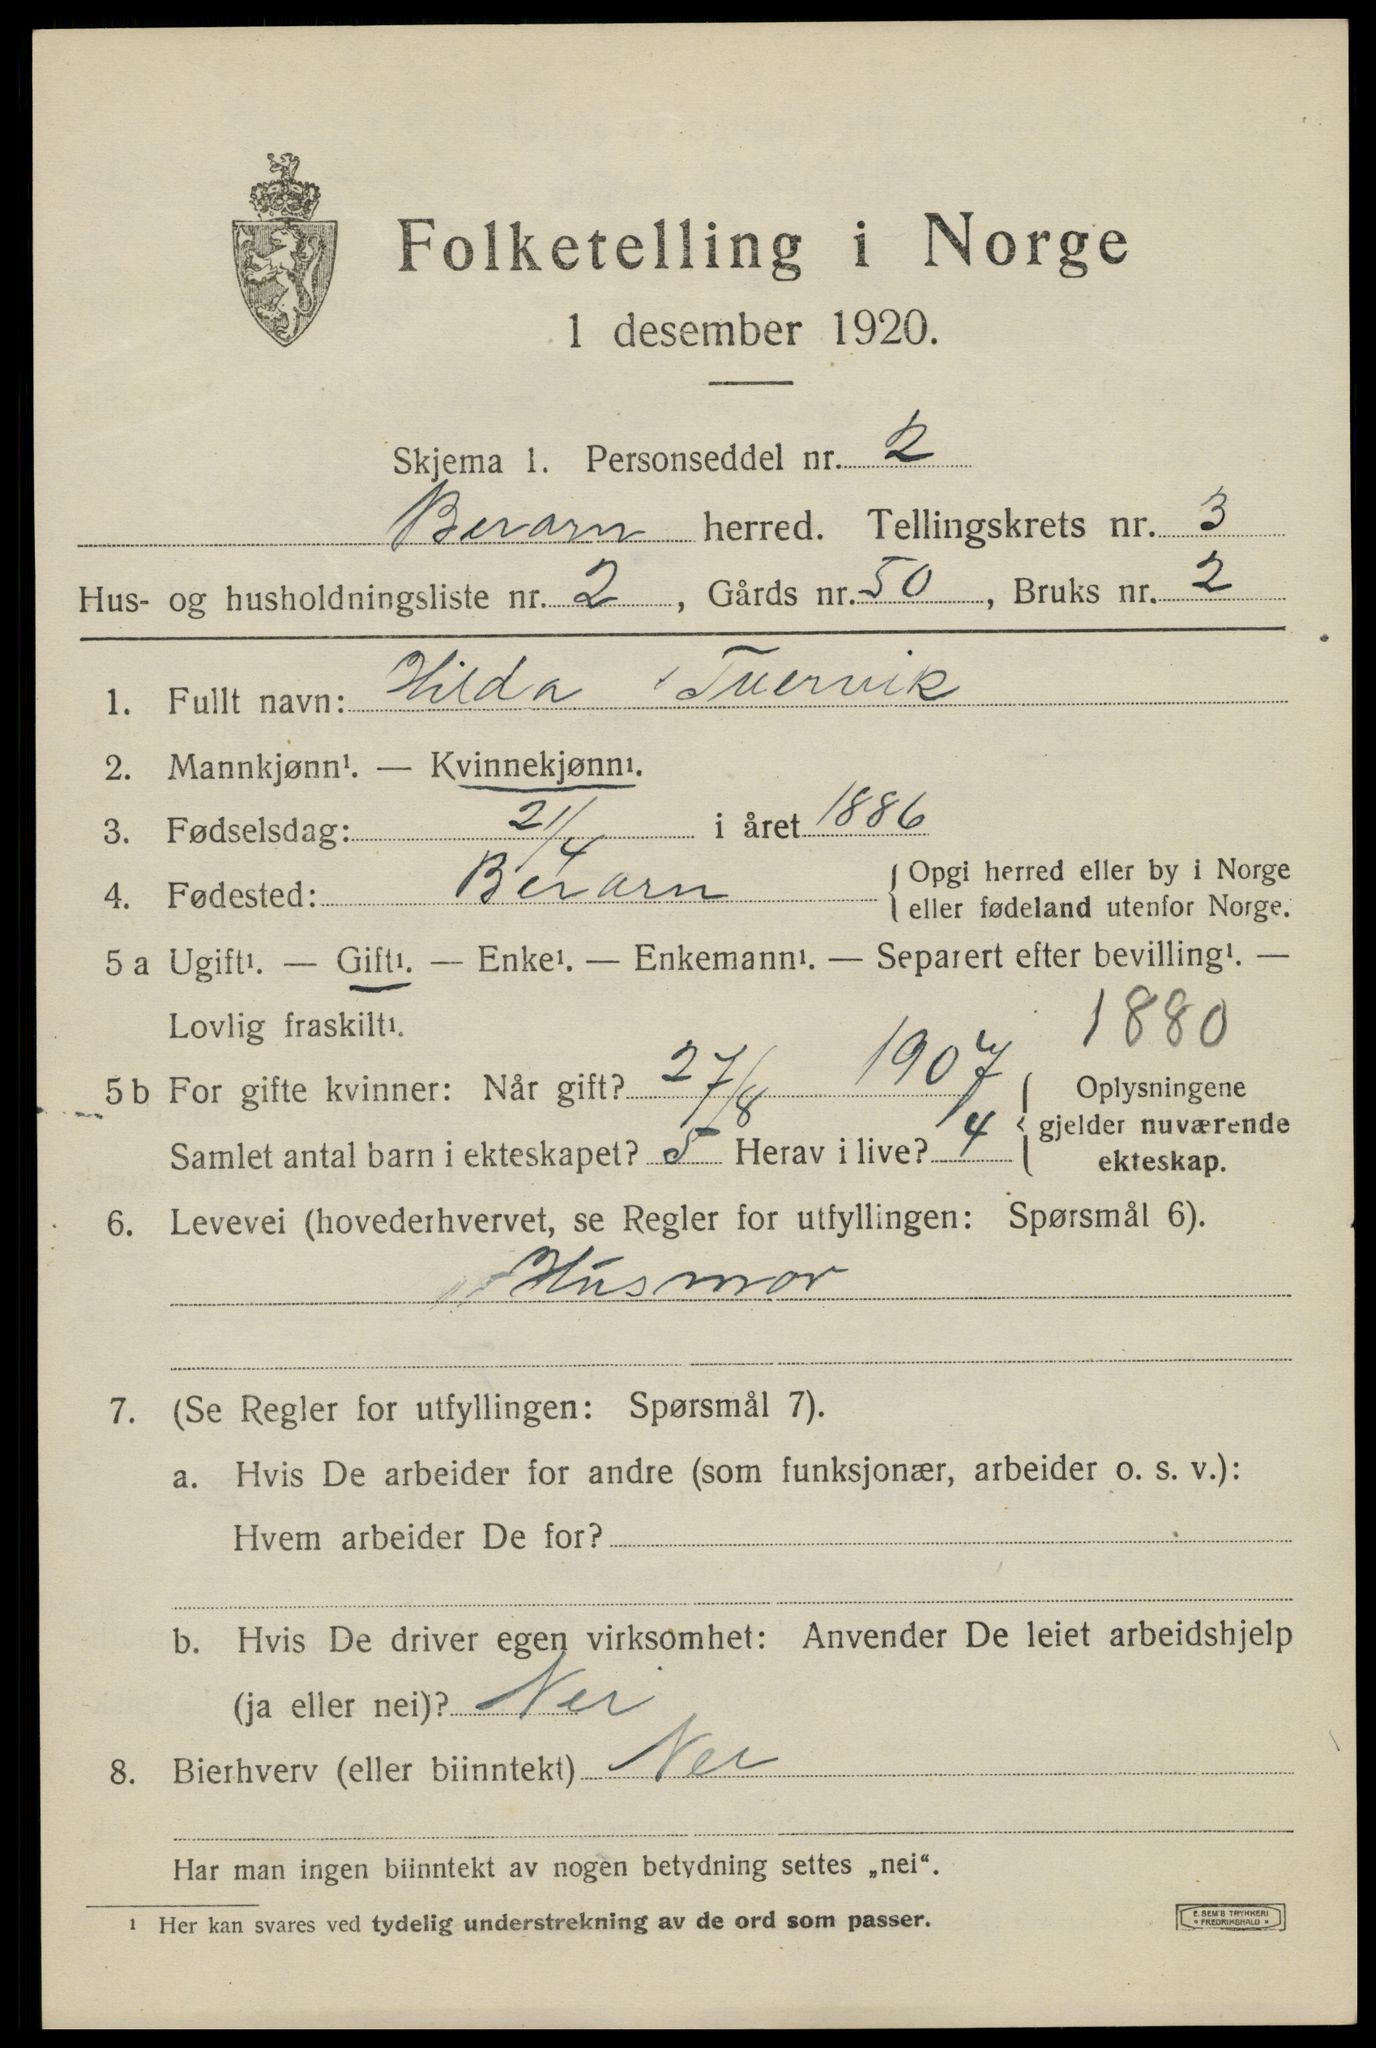 Folketelling i Norge
1 desember 1920.
Skjema 1. Personseddel nr. 2
Beiarn herred. Tellingskrets nr. 3
Hus- og husholdningsliste nr. 2, Gårds nr. 50, Bruks nr. 2
1. Fullt navn: Hilda Tvervik
2. Mannkjønn¹. — Kvinnekjønn¹.
3. Fødselsdag: 21/4 i året 1886
4. Fødested: Beiarn {Opgi herred eller by i Norge
eller fødeland utenfor Norge.
5 a Ugift¹. — Gift¹. — Enke¹. — Enkemann¹. — Separert efter bevilling¹. —
Lovlig fraskilt¹. 1880
5 b For gifte kvinner: Når gift? 27/8 1907 { Oplysningene
gjelder nuværende
Samlet antal barn i ekteskapet? 5 Herav i live? 4 ekteskap.
6. Levevei (hovederhvervet, se Regler for utfyllingen: Spørsmål 6).
Husmor
7. (Se Regler for utfyllingen: Spørsmål 7).
a. Hvis De arbeider for andre (som funksjonær, arbeider o. s. v.):
Hvem arbeider De for?
b. Hvis De driver egen virksomhet: Anvender De leiet arbeidshjelp
(ja eller nei)? Nei
8. Bierhverv (eller biinntekt) Nei
Har man ingen biinntekt av nogen betydning settes „nei“.
¹ Her kan svares ved tydelig understrekning av de ord som passer.
E. SEM'S TRYKKERI
FREDRIKSHALD